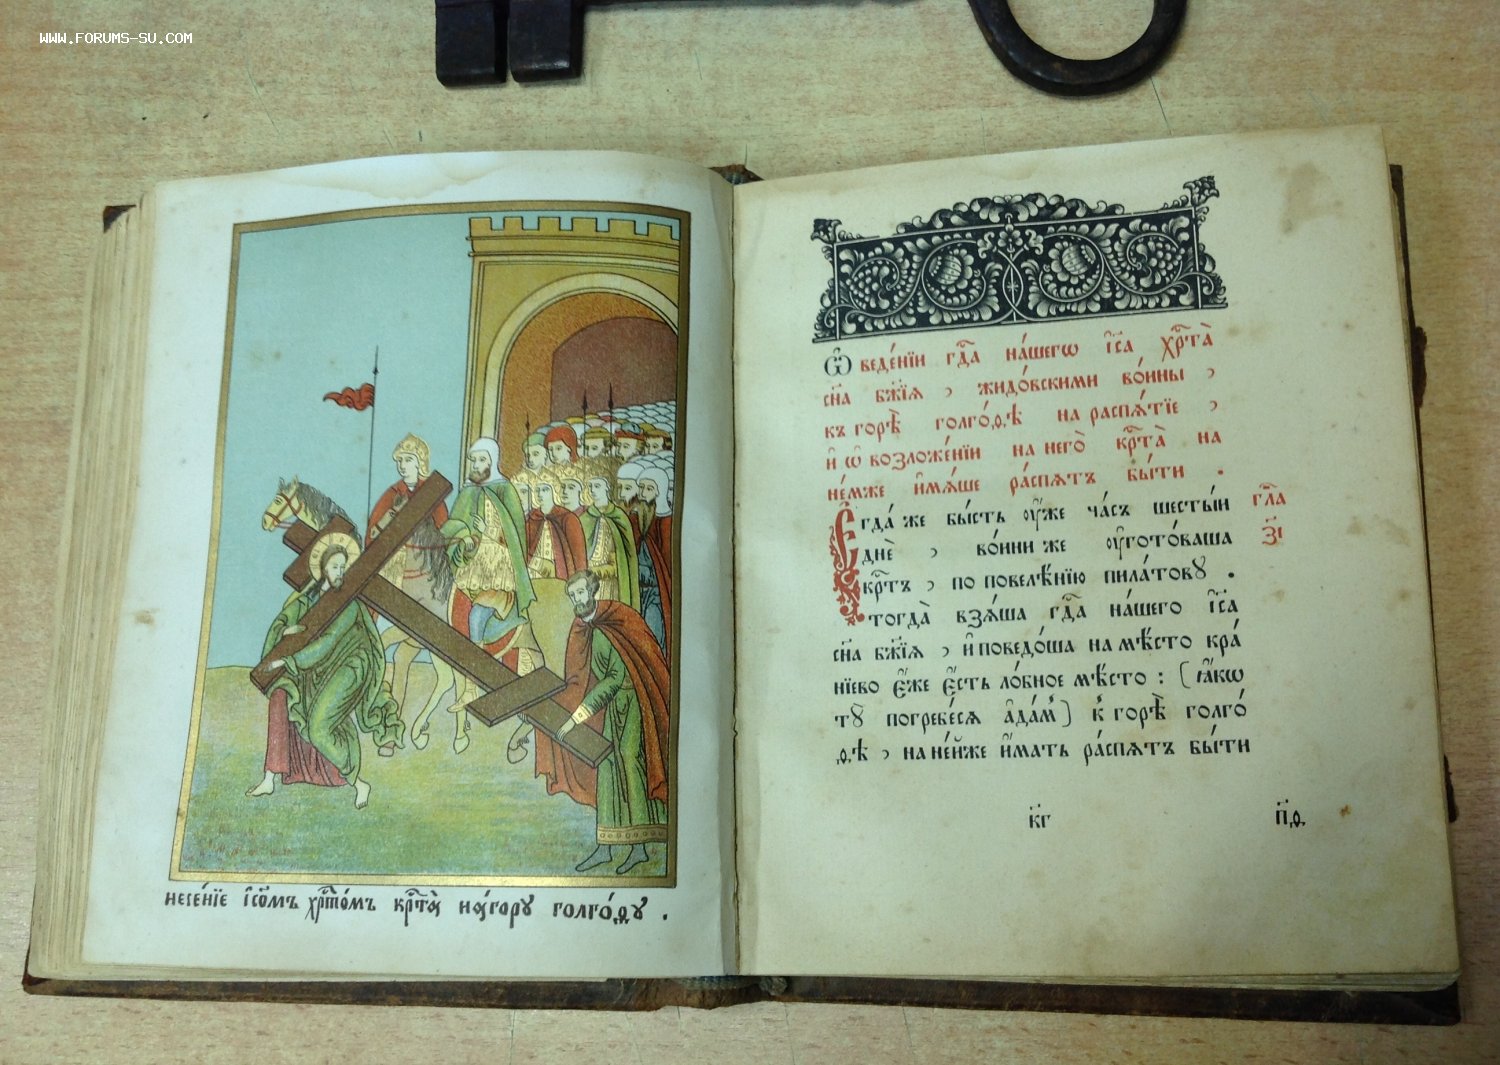 WWW.FORUMS-SU.COM
несе́нїе і҆со́мъ хрⷭ҇то́мъ крⷭ҇та̀ на́гору голго́ѳꙋ .
Ѡ҆ веде́нїи гдⷭ҇а на́шегѡ і҆са хрⷭ҇та̀
сн҃а бж҃їѧ , жидо́вскими во́ины ,
къ горѣ̀ голго́ѳѣ на распѧ́тїе ,
и҆ ѡ҆ возложе́нїи на него̀ крⷭ҇та̀ на
не́мже и҆мѧ́ше ра́спѧтъ бы́ти .
Е҆гда́ же бы́сть ᲂу҆́же ча́съ шесты́и
днѐ , во́ини же ᲂу҆гото́ваша
крⷭ҇тъ , по повелѣ́нїю пила́тову .
тогда̀ взѧ́ша гдⷭ҇а на́шего і҆са
сн҃а бж҃їѧ , и҆ поведо́ша на мѣ́сто кра́
нїево є҆́же є҆́сть ло́бное мѣ́сто : (ꙗ҆́кѡ
тꙋ̀ погребе́сѧ а҆да́мъ) к̾ горѣ̀ голго́
ѳѣ , на не́йже и҆́мать ра́спѧтъ бы́ти
гла
з҃і
к҃г
п҃ѳ